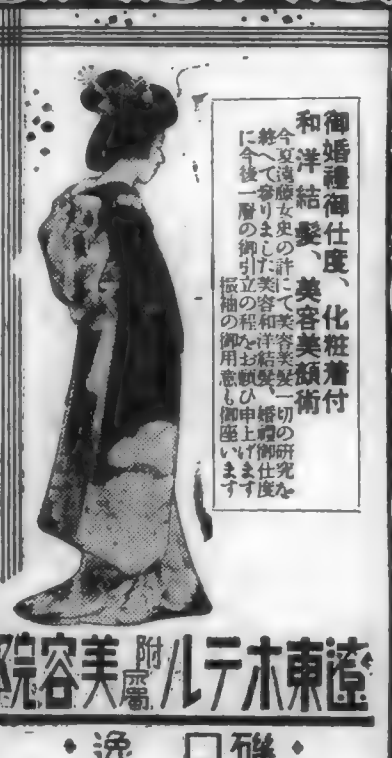 御婚禮御仕度、化粧着付
和洋結髮、美容美顏術
今夏遠藤女史の許にて美容美髮一切の研究を
終へて參りました美容和洋結髮、婚禮御仕度
に今後一層の御引立の程をお願ひ申上げます
振袖の御用意も御座います
遼東ホテル附屬美容院
磯口逸